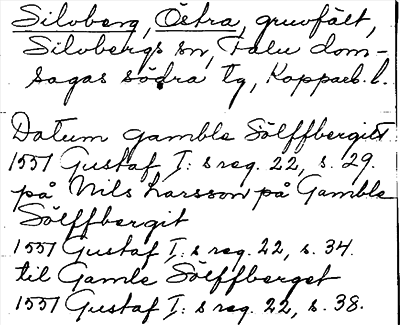 Silvberg, Östra, gruvfält,
Silvbergs sn, Falu dom-
sagas södra tg, Kopparb. l.
Datum gamble Sölffbergitt
1551 Gustaf I: s reg. 22, s. 29.
på Nils Larsson på Gamble
Sölffbergit
1551 Gustaf I: s reg. 22, s. 34.
til Gamle Sölffberget
1551 Gustaf I: s reg. 22, s. 38.